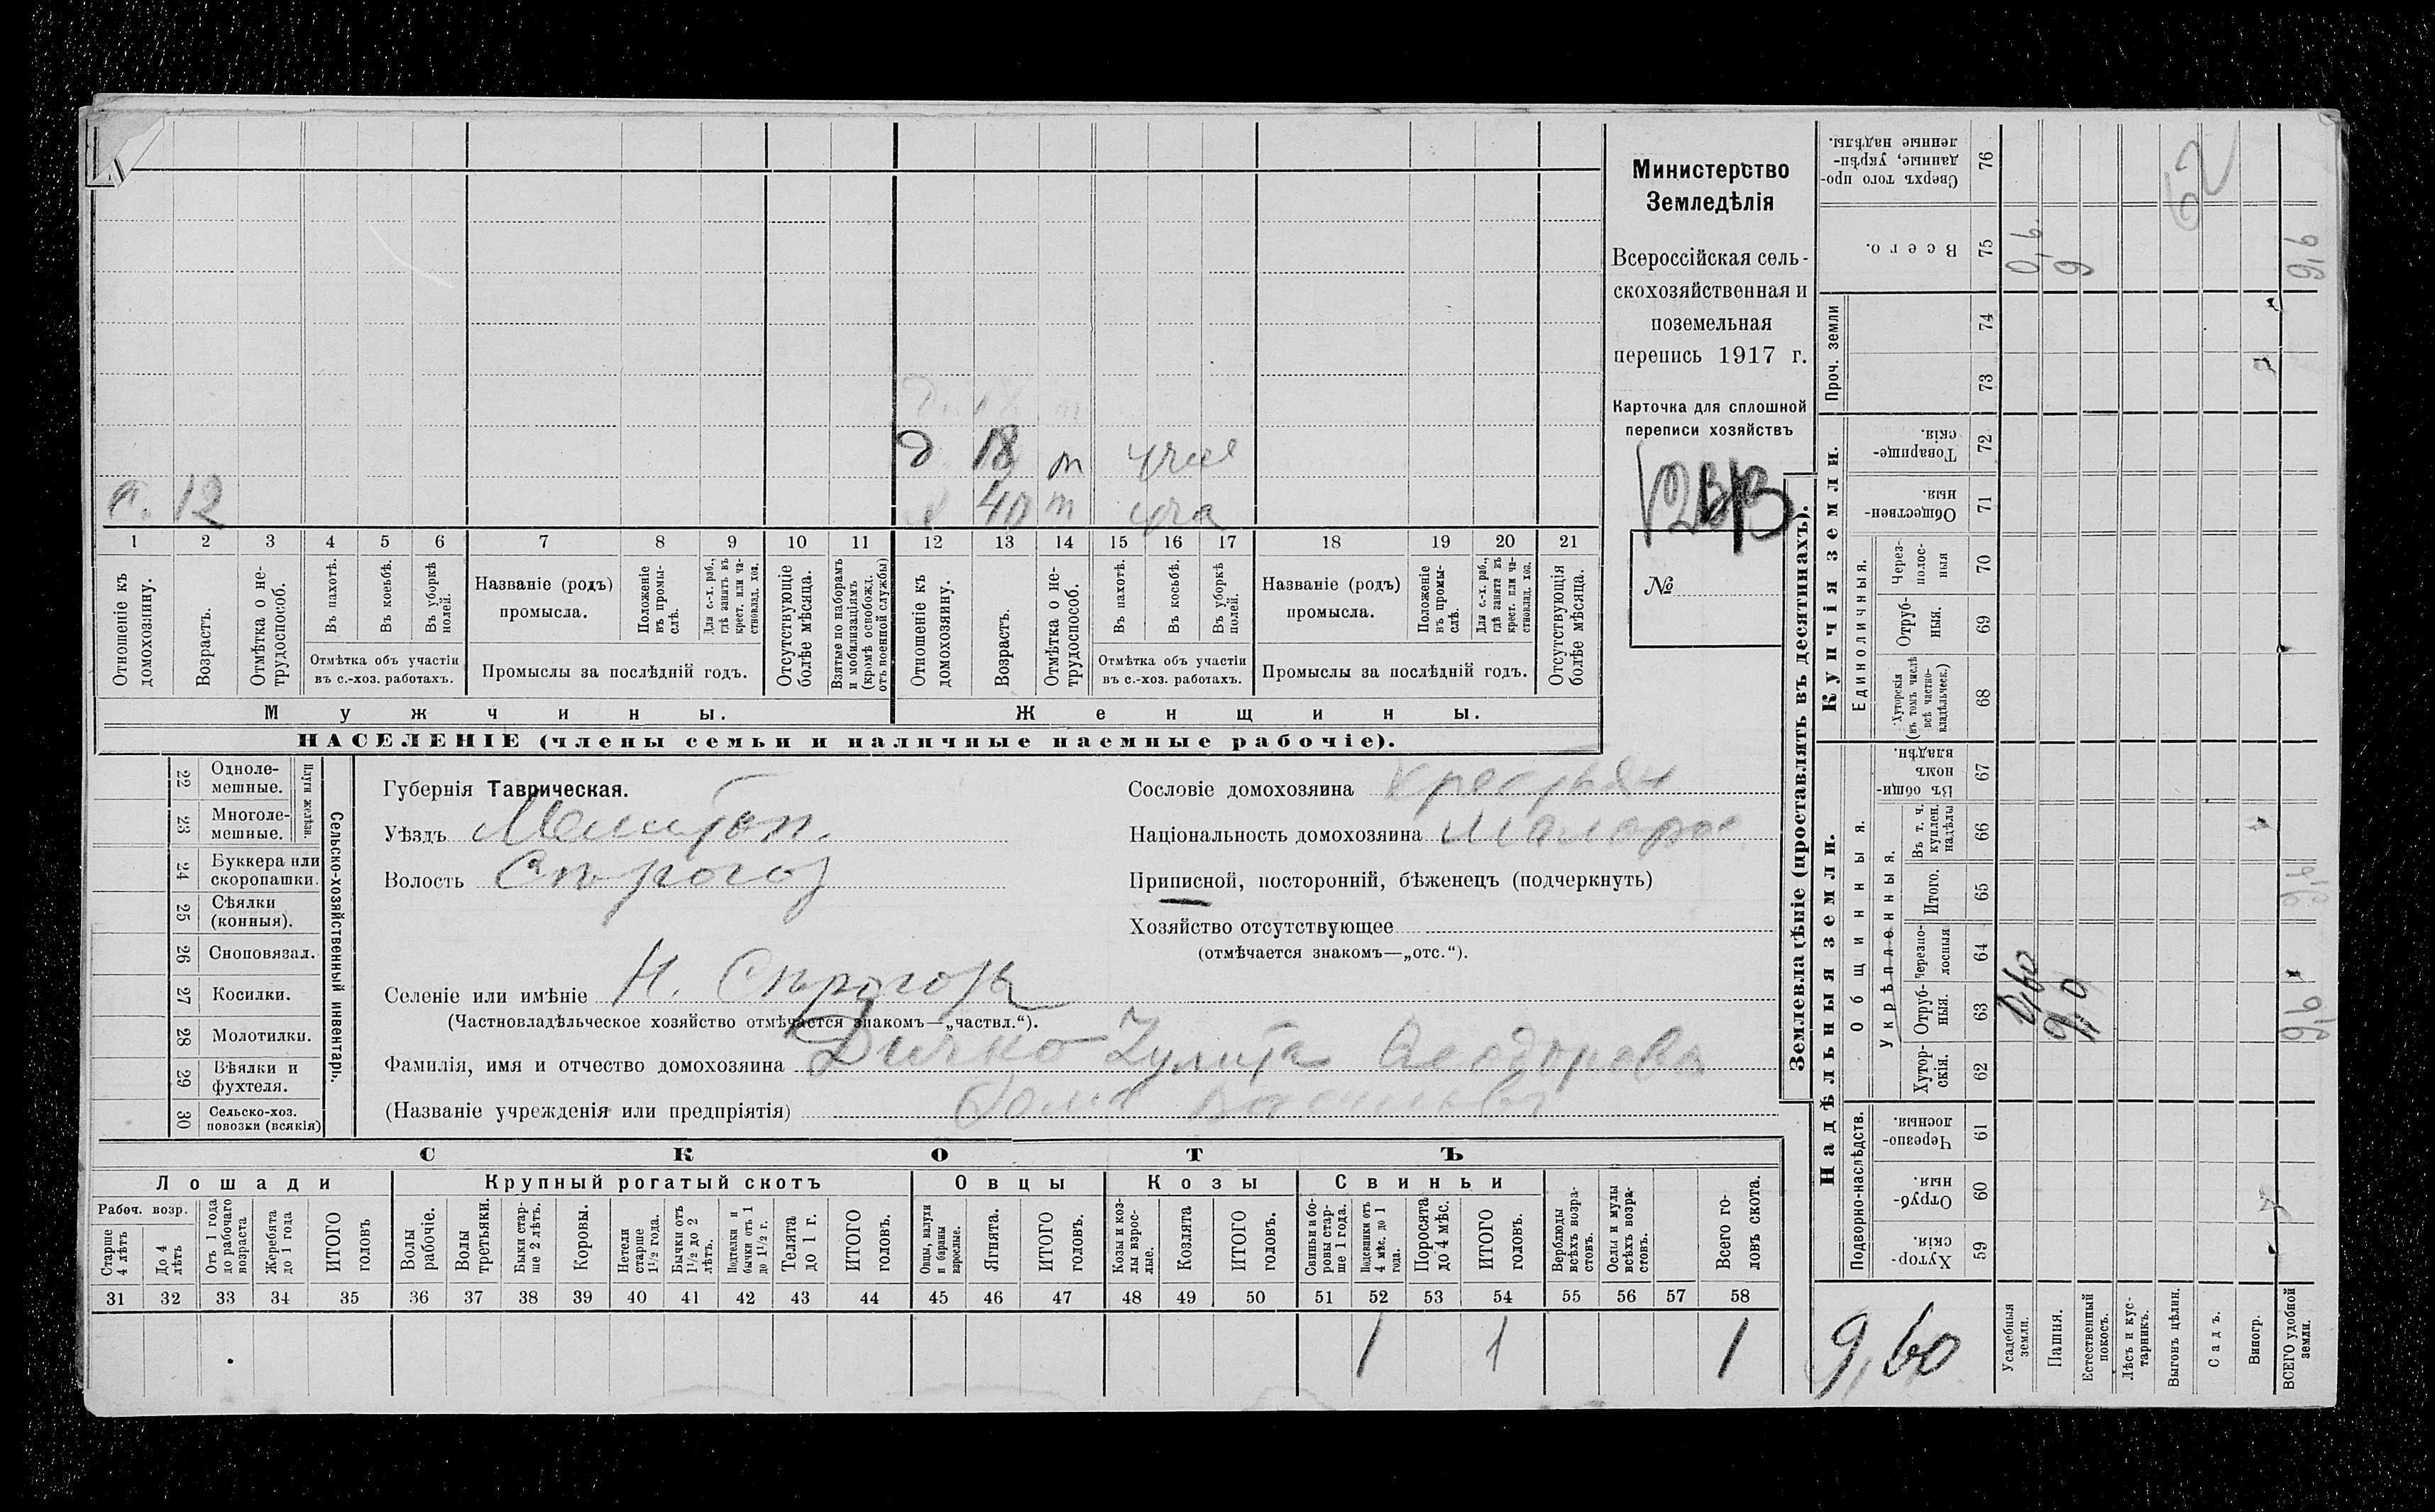 Министерство
Земледѣлія
Всероссійская сель-
скохозяйственная и
поземельная
перепись 1917 г.
Карточка для сплошной
переписи хозяйствъ
№
д 18 т
с. 12
40 т
1 2 3 4 5 6 7 8 9 10 11 12 13 14 15 16 17 18 19 20 21
Отношеніе къ домохозяину.
Возрастъ.
Отмѣтка о не-трудоспособ.
Въ пахотѣ.
Въ косьбѣ.
Въ уборкѣ полей.
Отмѣтка объ участіи
въ с.-хоз. работахъ.
Названіе (родъ)
промысла.
Положеніе въ промы-слѣ.
Для с.-х. раб., гдѣ занятъ въ крест. или ча-стновлад. хоз.
Промыслы за послѣдній годъ.
Отсутствующіе болѣе мѣсяца.
Взятые по наборамъ и мобилизаціямъ (кромѣ освобожд. отъ военной службы)
Отношеніе къ домохозяину.
Возрастъ.
Отмѣтка о не-трудоспособ.
Въ пахотѣ.
Въ косьбѣ.
Въ уборкѣ полей.
Отмѣтка объ участіи
въ с.-хоз. работахъ.
Названіе (родъ)
промысла.
Положеніе въ промы-слѣ.
Для с.-х. раб., гдѣ занята въ крест. или ча-стновлад. хоз.
Промыслы за послѣдній годъ.
Отсутствующія болѣе мѣсяца.
Мужчины.
Женщины.
НАСЕЛЕНІЕ (члены семьи и наличные наемные рабочіе).
22 Одноле-мешные.
23 Многоле-мешные.
Плуги желѣзн.
24 Буккера или скоропашки.
25 Сѣялки (конныя).
26 Сноповязал.
27 Косилки.
28 Молотилки.
29 Вѣялки и фухтеля.
30 Сельско-хоз. повозки (всякія)
Сельско-хозяйственный инвентарь.
Губернія Таврическая.
Уѣздъ Мелитоп.
Волость
Селеніе или имѣніе Н. Сѣрогозы
(Частновладѣльческое хозяйство отмѣчается знакомъ—„частвл.“).
Фамилія, имя и отчество домохозяина Дичко Улита
(Названіе учрежденія или предпріятія)
Сословіе домохозяина крестьян
Національность домохозяина малорос
Приписной, посторонній, бѣженецъ (подчеркнуть)
Хозяйство отсутствующее
(отмѣчается знакомъ—„отс.“).
СКОТЪ
Лошади
Крупный рогатый скотъ
Овцы
Козы
Свиньи
Рабоч. возр.
Старше 4 лѣтъ
До 4 лѣтъ
Отъ 1 года до рабочаго возраста
Жеребята до 1 года
ИТОГО головъ
Волы рабочіе.
Волы третьяки.
Быки стар-ше 2 лѣтъ.
Коровы.
Нетели старше 1½ года.
Бычки отъ 1½ до 2 лѣтъ.
Подтелки и бычки отъ 1 до 1½ г.
Телята до 1 г.
ИТОГО головъ.
Овцы, валухи и бараны взрослые.
Ягнята.
ИТОГО головъ.
Козы и коз-лы взрос-лые.
Козлята
ИТОГО головъ.
Свиньи и бо-ровы стар-ше 1 года.
Подсвинки отъ 4 мѣс. до 1 года.
Поросята до 4 мѣс.
ИТОГО головъ.
Верблюды всѣхъ возра-стовъ.
Ослы и мулы всѣхъ возра-стовъ.
Всего го-ловъ скота.
31 32 33 34 35 36 37 38 39 40 41 42 43 44 45 46 47 48 49 50 51 52 53 54 55 56 57 58
1 1 1
Землевладѣніе (проставлять въ десятинахъ).
Надѣльныя земли.
Купчія земли.
Проч. земли
Подворно-наслѣдств.
Общинныя.
Укрѣпленныя.
Единоличныя.
59 Хутор-скія.
60 Отруб-ныя.
61 Черезпо-лосныя.
62 Хутор-скія.
63 Отруб-ныя.
64 Черезпо-лосныя.
65 Итого.
66 Въ т. ч. куплен. надѣлы
67 Въ общи-номъ владѣн.
68 Хуторскія (въ томъ числѣ всѣ частно-владѣльческ.)
69 Отруб-ныя.
70 Через-полос-ныя
71 Обществен-ныя.
72 Товарище-скія.
73
74
75 Всего.
76 Сверхъ того про-данные, укрѣп-ленные надѣлы.
Усадебныя земли.
Пашня.
Естественный покосъ.
Лѣсъ и кус-тарникъ.
Выгонъ цѣлин.
Садъ.
Виногр.
ВСЕГО удобной земли.
9,60
0,60
9,0
0,6
9
9,6
9,6
62